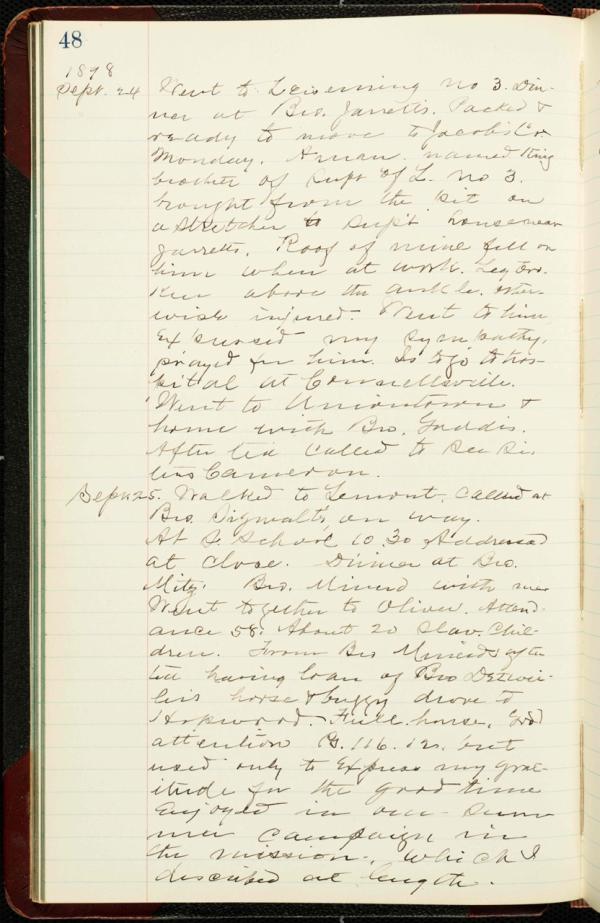 48
1898
Sept. 24 Went to Leisenring No 3. Din-
ner at Bro. Jarretts. Packed &
ready to move to Jacobs Cr
Monday. A man named King
brother of Supt of L. No 3.
brought from the pit on
a stretcher to Supt house near
Jarretts. Roof of mine fell on
him when at work. Leg bro-
ken above the ankle. other-
wise injured. Went to him
Expressed my sympathy,
prayed for him. Is to go to hos-
pital at Connellsville.
Went to Uniontown &
home with Bro. Gaddis.
After tea called to see Sis-
ters Cameron.
Sept. 25. Walked to Lemont. Called at
Bro. Sigwalts on way.
At S. School 10.30 Addressed
at close. Dinner at Bro.
Mitz. Bro. Minerd with me
Went together to Oliver. Attend-
ance 58. About 20 Slav. Chil-
dren. From Bro Minerds after
tea having loan of Bro Detwil-
lers horse & buggy drove to
Hopwood. Full house, Good
attention Ps. 116. 12. but
used only to Express my grat-
itude for the good time
Enjoyed in our Sum-
mer Campaign in
the mission, which I
described at length.